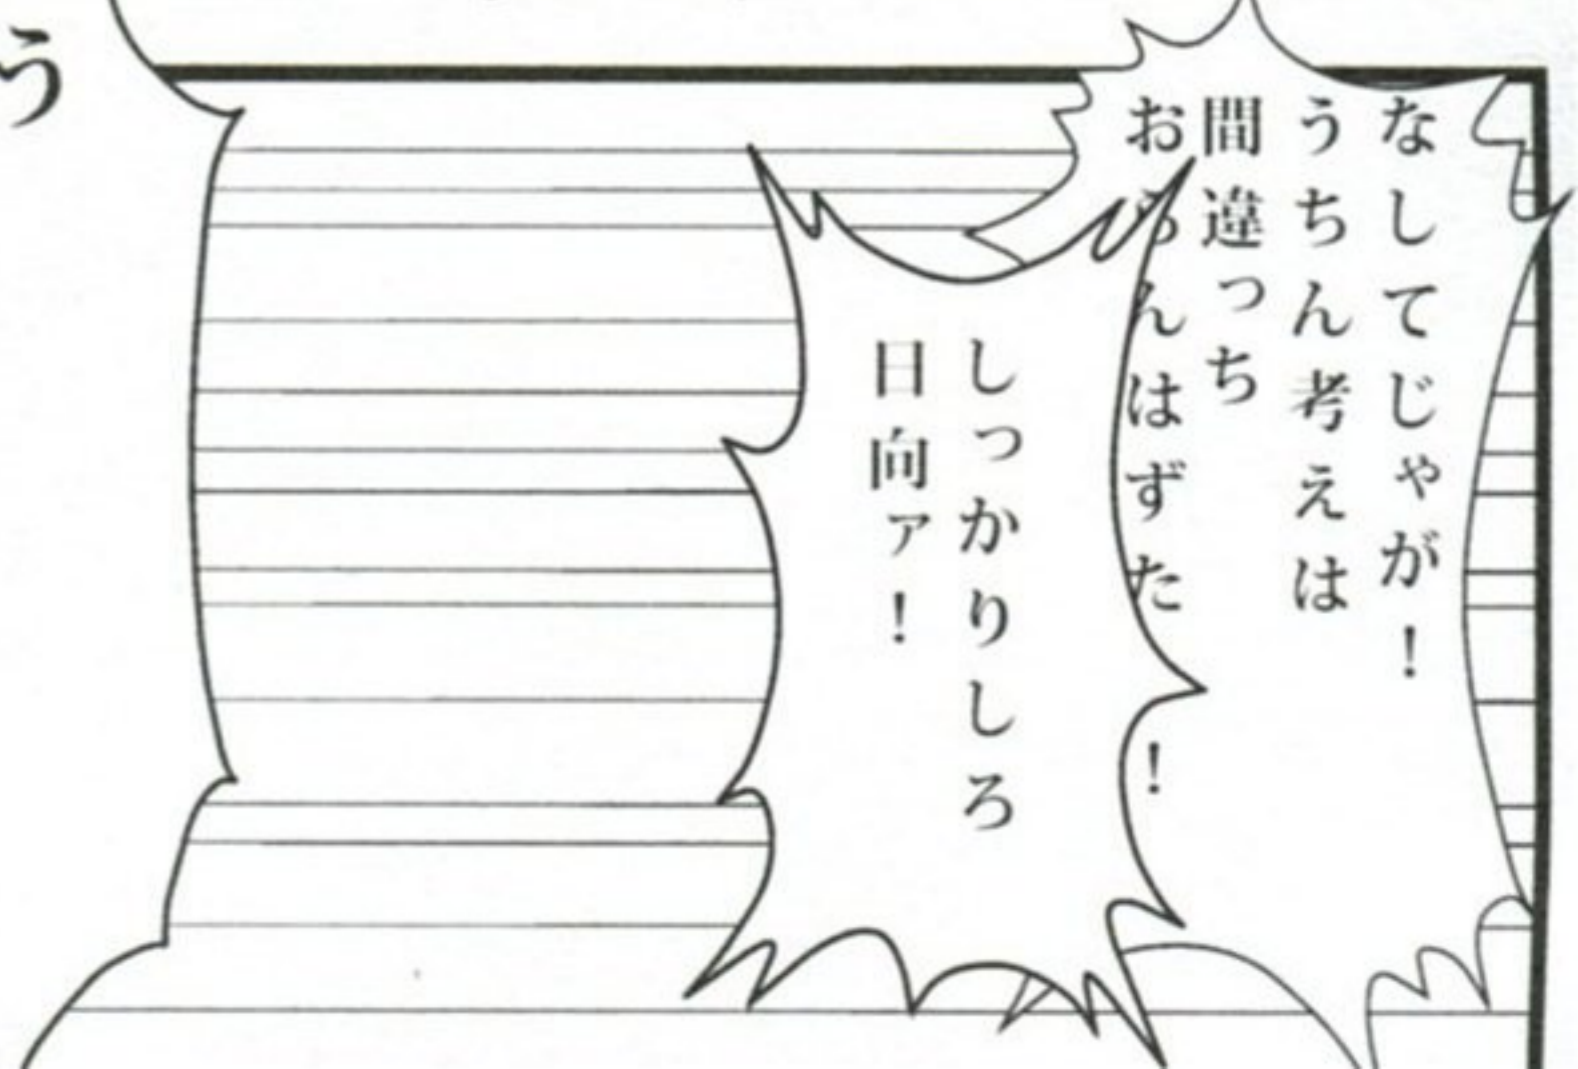 なしてじゃが！
うちん考えは
間違っち
おらんはずた！
しっかりしろ
日向ァ！
う